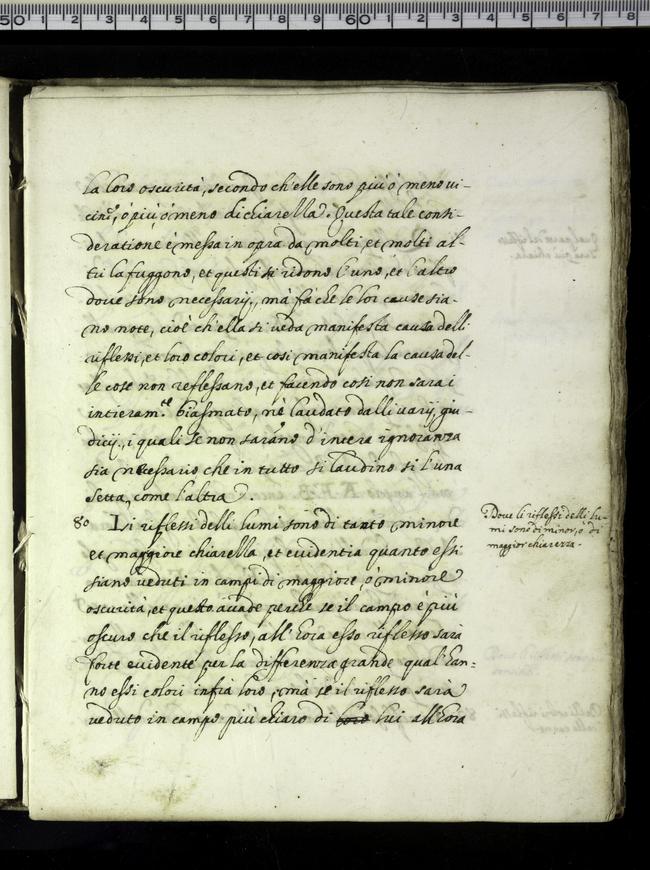 la loro oscurità, secondo ch'elle sono più ò meno ui-
cine, ò più, ò meno di chiarella. Questa tale consi-
deratione è messa in opra da molti, et molti al-
tri la fuggono, et questi si ridono l'uno, et l'altro
doue sono necessarij, mà fà che le lor cause sia-
no note, cioè ch'ella si ueda manifesta causa delli
riflessi, et loro colori, et cosi manifesta la causa del-
le cose non reflessano, et facendo cosi non sarai
intieram.te biasmato, nè laudato dalli uarij, giu-
dicij, i quali se non sarãno d'intera ignoranza
sia necessario che in tutto si laudino si l'una
setta, come l'altra.
80 Li riflessi delli lumi sono di tanto minore
et maggiore chiarella, et euidentia quanto essi
siano ueduti in campi di maggiore, ò minore
oscurità, et questo acade perche se il campo è più
oscuro che il riflesso, all'hora esso riflesso sarà
forte euidente per la differenza grande qual'han=
no essi colori infra loro, mà se il riflesso sarà
ueduto in campo più chiaro di loro lui all'hora
Doue li riflessi delli lu-
mi sono di minor, ò di
maggior chiarezza.